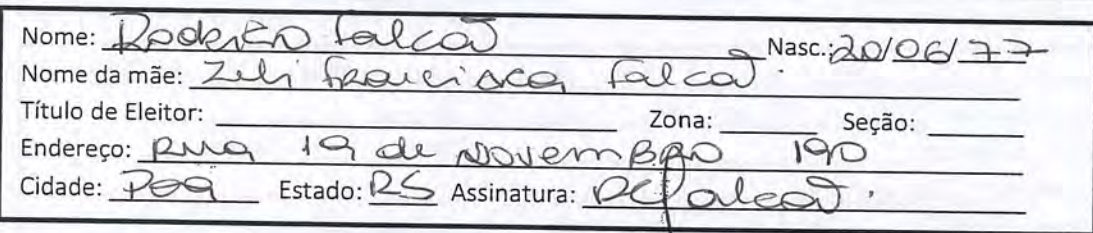 Nome: Roderéo Falcão Nasc.: 20/06/77
Nome da mãe: Zeli Francisca Falcão
Título de Eleitor: Zona: Seção:
Endereço: Rua 19 de Novembro 190
Cidade: Poa Estado: RS Assinatura: RCFalcão